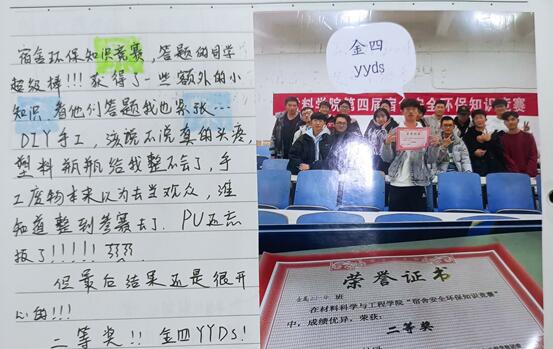 宿舍环保知识竞赛,答题的同学
超级棒!!!获得了一些额外的小
知识,看他们答题我也紧张…
DIY手工,该说不说真的头疼,
塑料瓶瓶给我整不会了,手
工废物本来以为去当观众,谁
知道整到参赛去了. PU还忘
拔了!!!!!
但最后结果还是很开
心的!!!
二等奖!! 金四YYDS!
金四
yyds
料学院第四届宿 安全环保知识竞赛
荣誉证书
班
在材料科学与工程学院“宿舍安全环保知识竞赛”
中,成绩优异,荣获:
二等奖